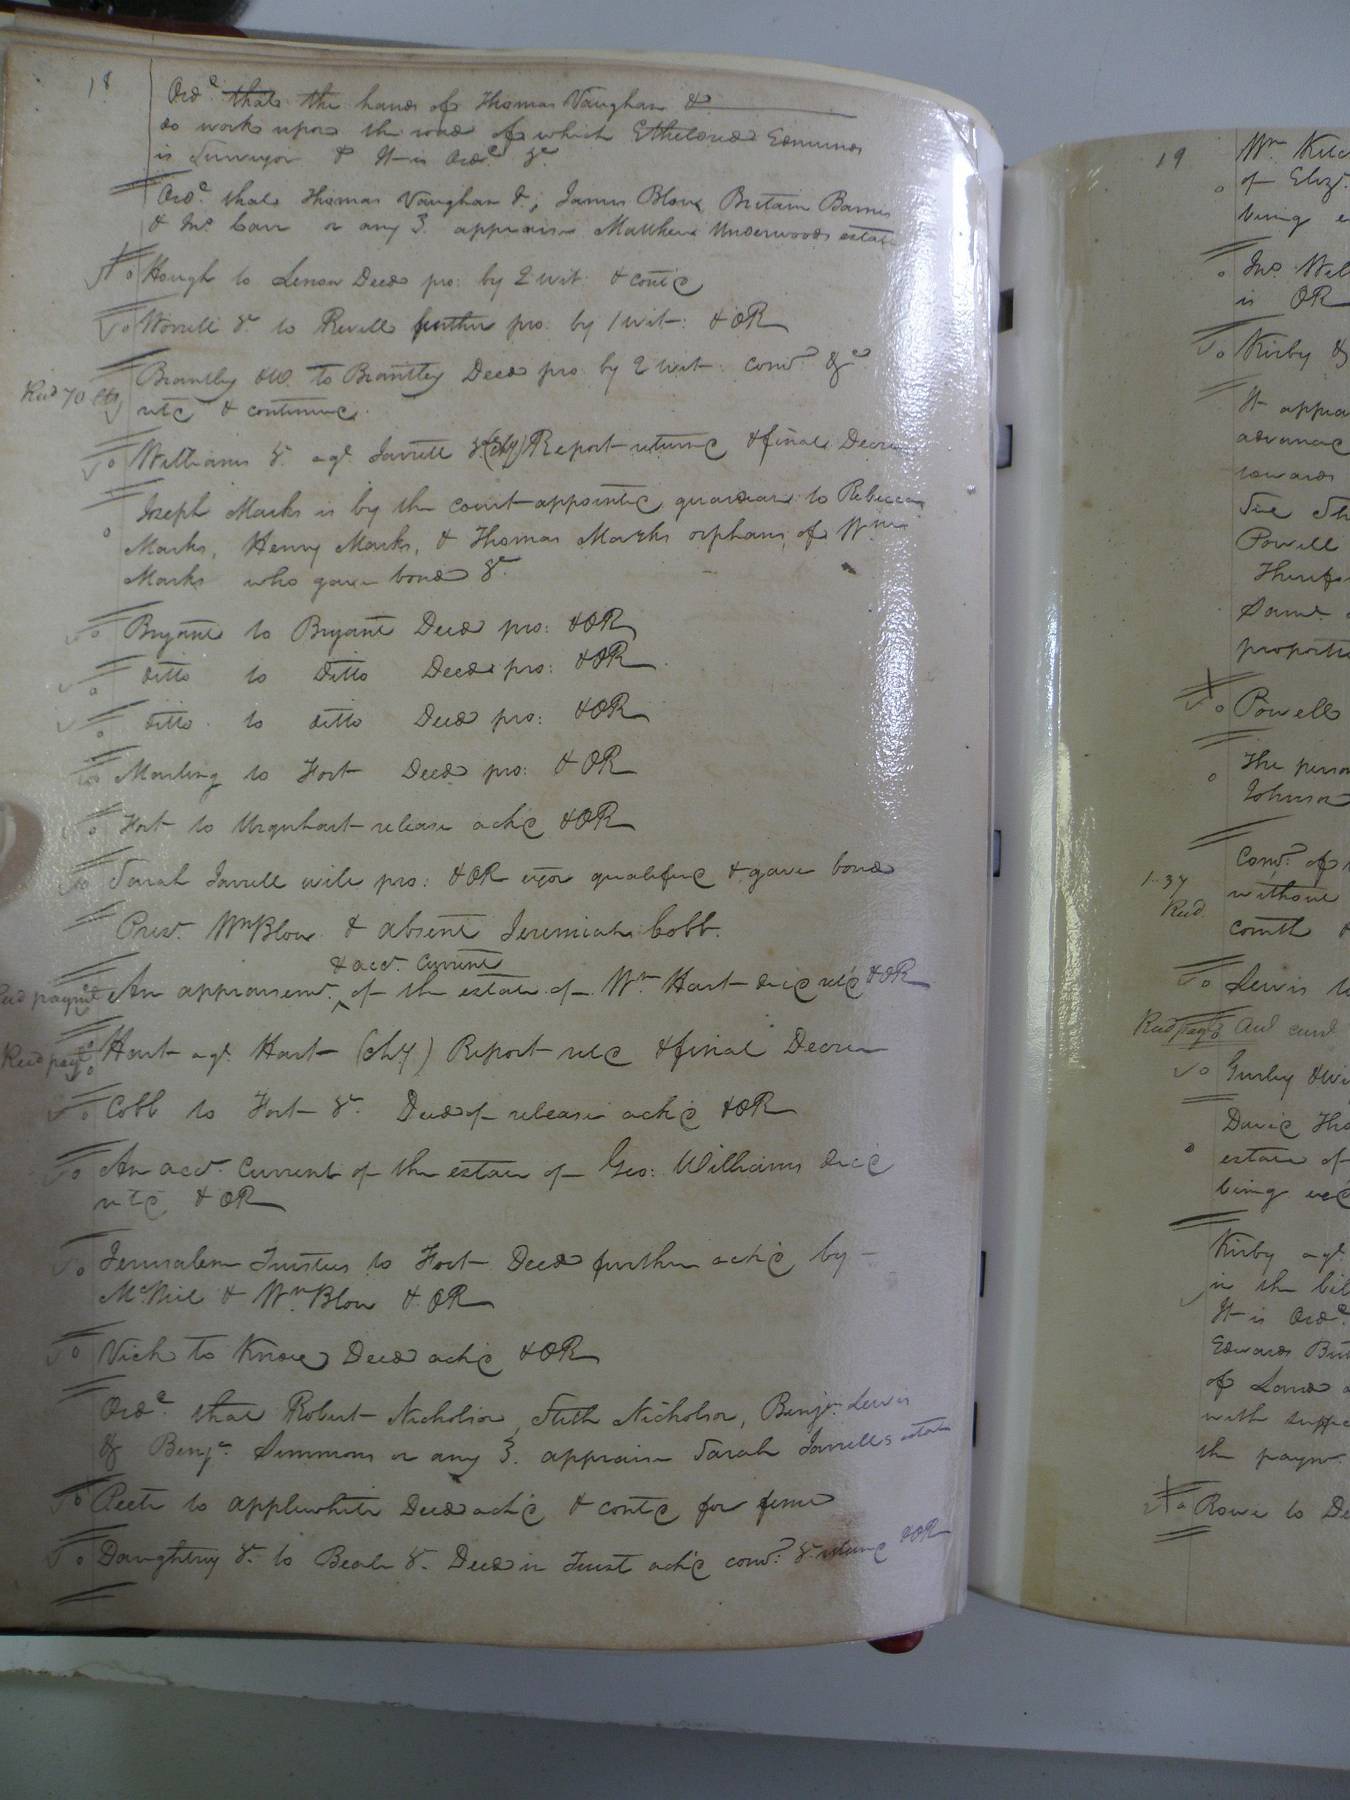 18
Ord.e that the hands of Thomas Vaughan &
do work upon the road of which Etheldred Edmunds
is Surveyor & It is Ord.e &c
Ord.e that Thomas Vaughan &, James Blow, Britain Barnes
& Jno. Carr or any 3. appraise Matthew Underwoods estate
Hough to Lenow Deed pro: by 2 wit: & cont'd
Worrell &c. to Revell further pro: by 1 wit: & OR
Brantley & W. to Brantley Deed pro by 2 wit. com.n &c
Recd 70 cts
ret'd & continued.
Williams &c. agt. Jarrell &c (chy) Report returned & final Decree
Joseph Marks is by the court appointed guardian to Rebecca
Marks, Henry Marks, & Thomas Marks orphans of Wm
Marks who gave bond &c
Bryant to Bryant Deed pro: & OR
ditto to ditto Deed pro: & OR
ditto to ditto Deed pro: & OR
to Fort Deed pro: & OR
Fort to Urquhart release ack'd & OR
Sarah Jarrell will pro: & OR exor qualified & gave bond
Prest. Wm Blow & absent Jeremiah Cobb.
& acct. Current
An appraisemt. of the estate of Wm Hart dec'd ret'd & OR
Hart agt. Hart (chy) Report ret'd & final Decree
Cobb to Fort &c. Deed of release ack'd & OR
An acct. Current of the estate of Geo: Williams dec'd
ret'd & OR
Jerusalem Trustees to Fort Deed further ack'd by
McNiel & Wm. Blow & OR
Vick to Deed ack'd & OR
Ord.e that Robert Nicholson, Stith Nicholson, Benjn. Lewis
& Benjn. Simmons or any 3. appraise Sarah Jarrells estate
Peete to applewhite Deed ack'd & cont'd for feme
Daughtrey &c. to Beale &c. Deed in Trust ack'd com.n & returned & OR
19
Wm
of Eliz.
being
Jno.
is OR
Kirby &
It appea
towards
Powell
Therefo
Same
proporti
Powell
The person
Johnson
Com.n of
1.37
Recd
without
Lewis to
Gurley & wi
David Tho
estate of
being
Kirby agt
in the bil
It is Ord.e
Edwards
of Land
with
the paym
Rowe to De